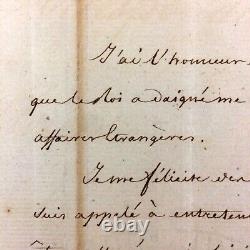 J'ai l'honneur
que le Roi a daigné me
affaires Etrangères.
Je me félicite
suis appelé à entreten